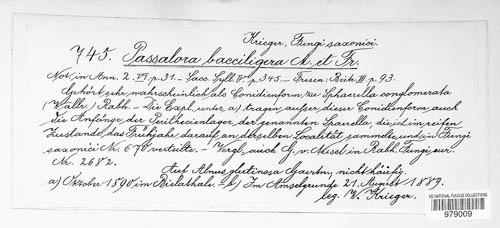 Krieger, Fungi saxonici.
745. Passalora bacciligera M. et Fr.
Not. in Ann. 2. VI. p. 31. – Sacc. Syll. IV. p. 345. – Fresen. Beitr. III. p. 93.
Gehört sehr wahrscheinlich als Conidienform zu Sphaerella conglomerata
(Wallr.) Rabh. – Die Expl. unter a) tragen außer dieser Conidienform auch
die Anfänge der Peritheciumlager der genannten Sphaerella, die ich im reifen
Zustande das Frühjahr darauf an derselben Localität sammelte und in Fungi
saxonici No. 670 verteilte. – Vergl. auch G. v. Niessl in Rabh. Fungi eur.
Nr. 2672.
Auf Alnus glutinosa Gaertn., nicht häufig.
a) Oktober 1890 im Bielathale. b) Im Amselgrunde 21. August 1889.
leg. W. Krieger.
US NATIONAL FUNGUS COLLECTIONS
979009